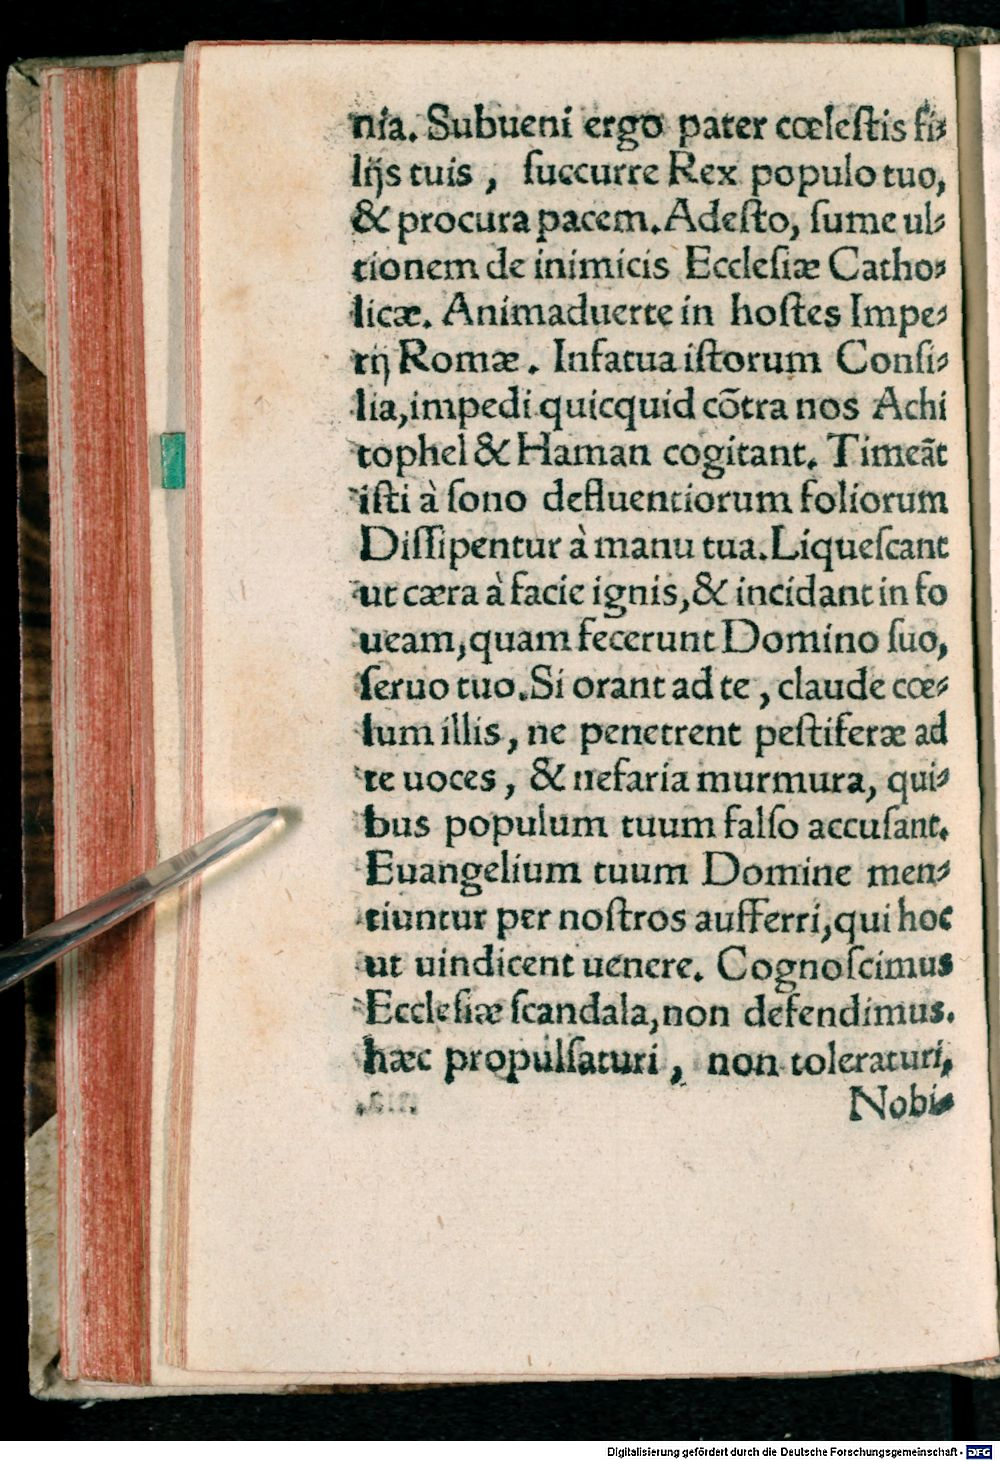 nia. Subueni ergo pater cœleſtis fi⸗
lijs tuis , ſuccurre Rex populo tuo,
& procura pacem. Adeſto, ſume ul⸗
tionem de inimicis Eccleſiæ Catho⸗
licæ. Animaduerte in hoſtes Impe⸗
rij Romæ . Infatua iſtorum Conſi⸗
lia, impedi quicquid cõtra nos Achi
tophel & Haman cogitant. Timeãt
iſti à ſono defluentiorum foliorum
Diſſipentur à manu tua. Liqueſcant
ut cæra à facie ignis, & incidant in fo
ueam, quam fecerunt Domino ſuo,
ſeruo tuo. Si orant ad te , claude cœ⸗
lum illis , ne penetrent peſtiferæ ad
te uoces , & nefaria murmura, qui⸗
bus populum tuum falſo accuſant.
Euangelium tuum Domine men⸗
tiuntur per noſtros aufferri, qui hoc
ut uindicent uenere. Cognoſcimus
Eccleſiæ ſcandala, non defendimus.
hæc propulſaturi , non toleraturi,
Nobi⸗
Digitalisierung gefördert durch die Deutsche Forschungsgemeinschaft - DFG